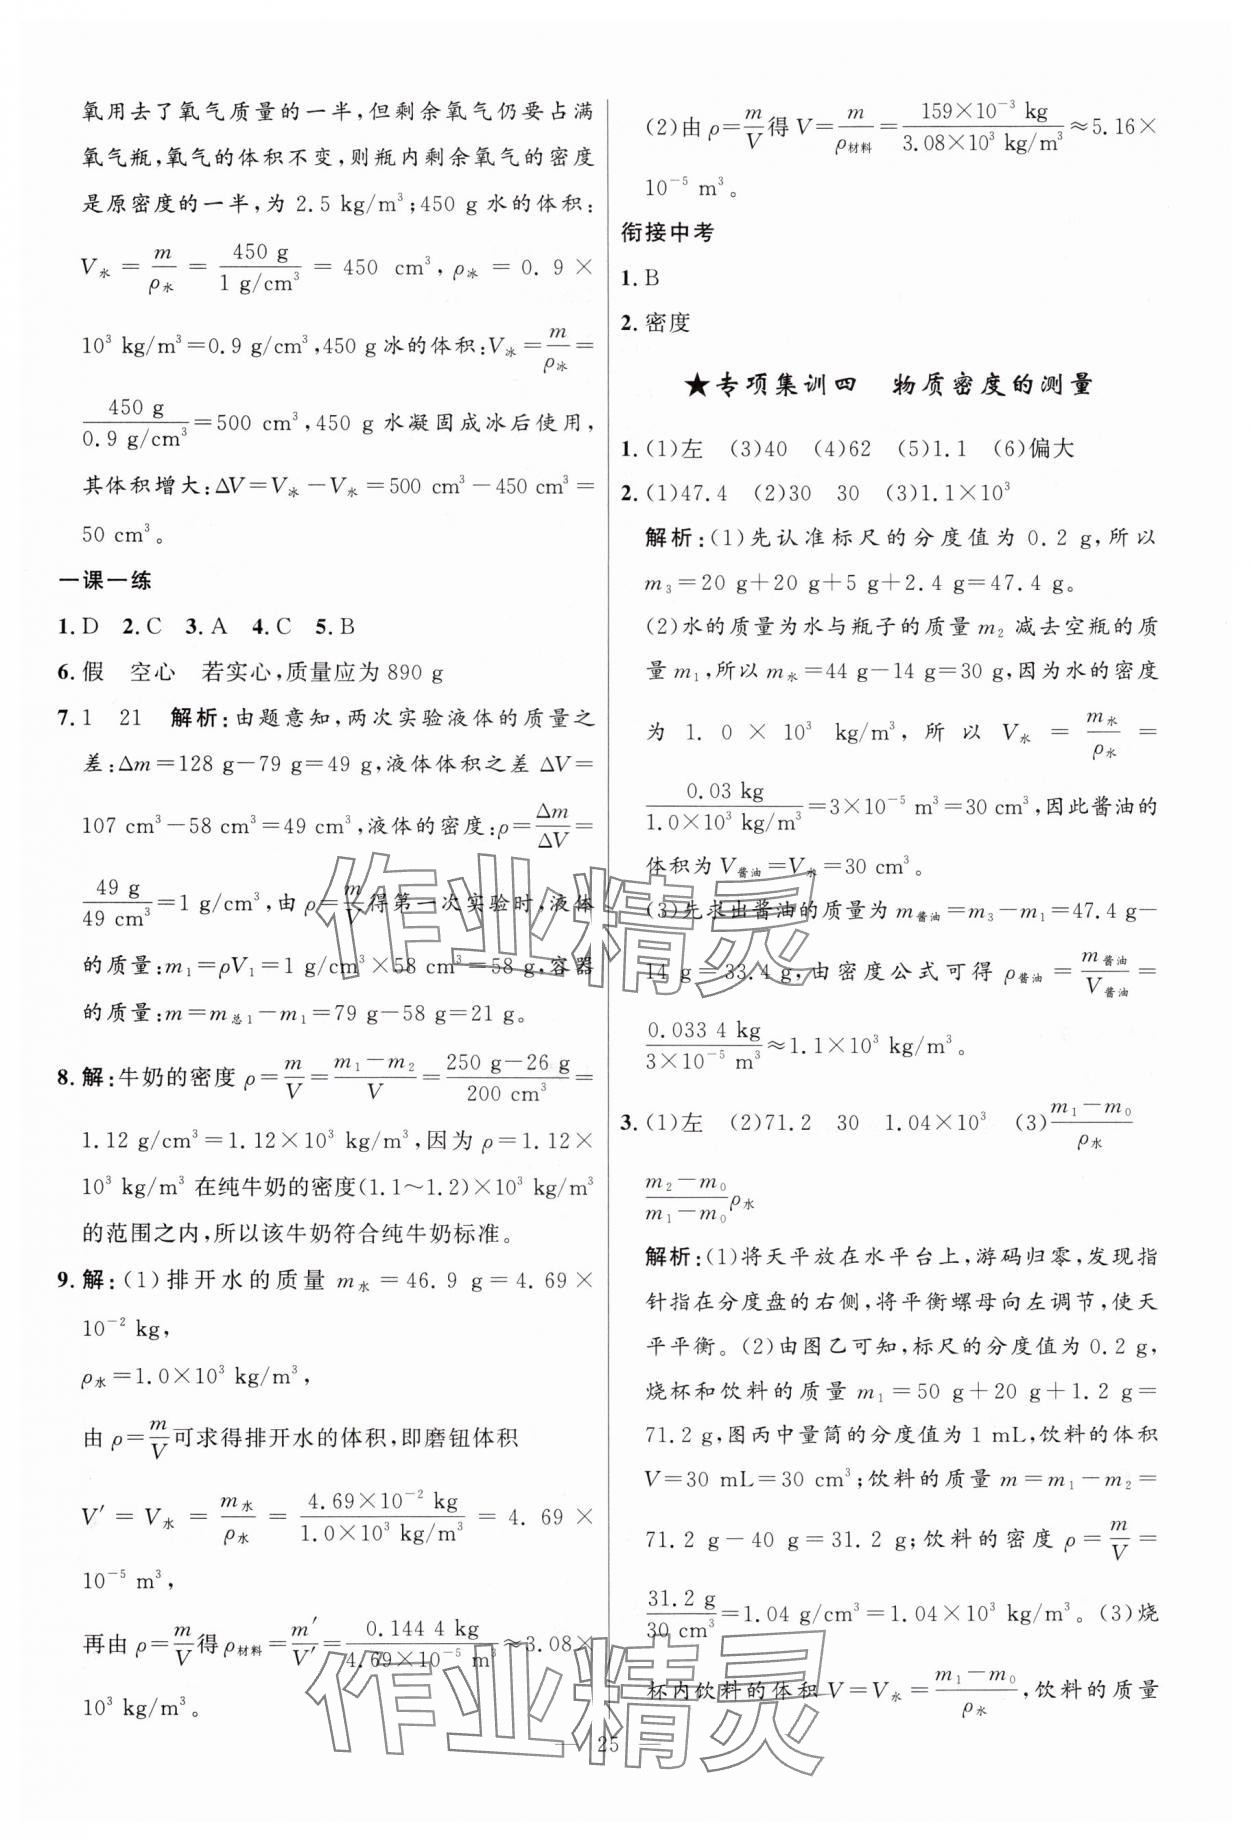 氧用去了氧气质量的一半,但剩余氧气仍要占满
氧气瓶,氧气的体积不变,则瓶内剩余氧气的密度
是原密度的一半,为 2.5 kg/m³;450 g 水的体积:
V水 = m/ρ水 = 450 g/1 g/cm³ = 450 cm³,ρ冰 = 0.9 ×
10³ kg/m³=0.9 g/cm³,450 g 冰的体积:V冰=m/ρ冰=
450 g/0.9 g/cm³=500 cm³,450 g 水凝固成冰后使用,
其体积增大:ΔV=V冰-V水=500 cm³-450 cm³=
50 cm³。
一课一练
1. D 2. C 3. A 4. C 5. B
6. 假 空心 若实心,质量应为 890 g
7. 1 21 解析:由题意知,两次实验液体的质量之
差:Δm=128 g-79 g=49 g,液体体积之差 ΔV=
107 cm³-58 cm³=49 cm³,液体的密度:ρ=Δm/ΔV=
49 g/49 cm³=1 g/cm³,由 ρ=m/V得第一次实验时,液体
的质量:m₁=ρV₁=1 g/cm³×58 cm³=58 g,容器
的质量:m=m总1-m₁=79 g-58 g=21 g。
8. 解:牛奶的密度 ρ=m/V=m₁-m₂/V=250 g-26 g/200 cm³=
1.12 g/cm³=1.12×10³ kg/m³,因为 ρ=1.12×
10³ kg/m³ 在纯牛奶的密度(1.1~1.2)×10³ kg/m³
的范围之内,所以该牛奶符合纯牛奶标准。
9. 解:(1)排开水的质量 m水=46.9 g=4.69×
10⁻² kg,
ρ水=1.0×10³ kg/m³,
由 ρ=m/V可求得排开水的体积,即磨钮体积
V′ = V水 = m水/ρ水 = 4.69×10⁻² kg/1.0×10³ kg/m³ = 4.69 ×
10⁻⁵ m³,
再由 ρ=m/V得 ρ材料=m′/V′=0.144 4 kg/4.69×10⁻⁵ m³≈3.08×
10³ kg/m³。
(2)由 ρ=m/V得 V=m/ρ材料=159×10⁻³ kg/3.08×10³ kg/m³≈5.16×
10⁻⁵ m³。
衔接中考
1. B
2. 密度
★专项集训四 物质密度的测量
1. (1)左 (3)40 (4)62 (5)1.1 (6)偏大
2. (1)47.4 (2)30 30 (3)1.1×10³
解析:(1)先认准标尺的分度值为 0.2 g,所以
m₃=20 g+20 g+5 g+2.4 g=47.4 g。
(2)水的质量为水与瓶子的质量 m₂ 减去空瓶的质
量 m₁,所以 m水=44 g-14 g=30 g,因为水的密度
为 1.0 × 10³ kg/m³,所以 V水 = m水/ρ水 =
0.03 kg/1.0×10³ kg/m³=3×10⁻⁵ m³=30 cm³,因此酱油的
体积为 V酱油=V水=30 cm³。
(3)先求出酱油的质量为 m酱油=m₃-m₁=47.4 g-
14 g=33.4 g,由密度公式可得 ρ酱油=m酱油/V酱油=
0.033 4 kg/3×10⁻⁵ m³≈1.1×10³ kg/m³。
3. (1)左 (2)71.2 30 1.04×10³ (3)m₁-m₀/ρ水
m₂-m₀/m₁-m₀ρ水
解析:(1)将天平放在水平台上,游码归零,发现指
针指在分度盘的右侧,将平衡螺母向左调节,使天
平平衡。(2)由图乙可知,标尺的分度值为 0.2 g,
烧杯和饮料的质量 m₁=50 g+20 g+1.2 g=
71.2 g,图丙中量筒的分度值为 1 mL,饮料的体积
V=30 mL=30 cm³;饮料的质量 m=m₁-m₂=
71.2 g-40 g=31.2 g;饮料的密度 ρ=m/V=
31.2 g/30 cm³=1.04 g/cm³=1.04×10³ kg/m³。(3)烧
杯内饮料的体积 V=V水=m₁-m₀/ρ水,饮料的质量
作业精灵
作业精灵
— 25 —